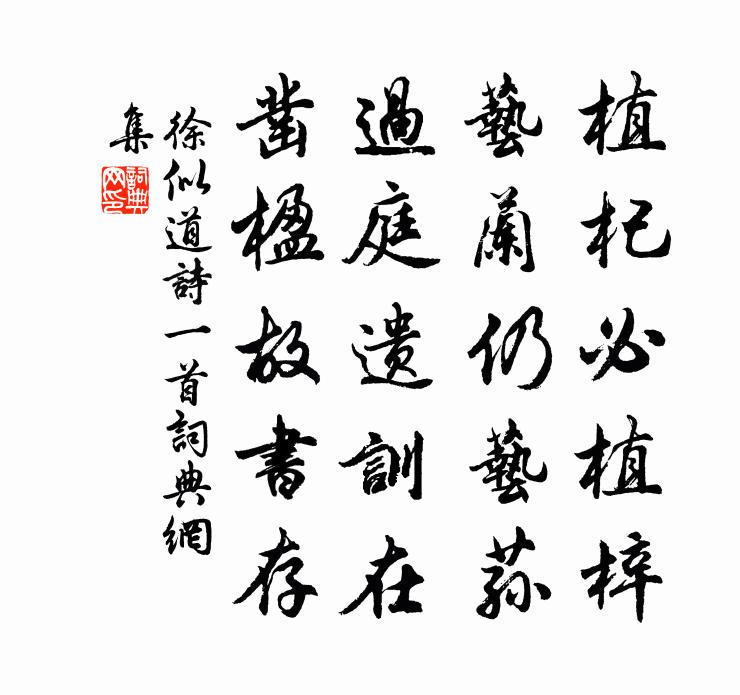 植杞必植梓
藝蘭仍藝蓀
過庭遺訓在
凿楹故書存
徐似道詩一首詞典網
集
詞典
网印